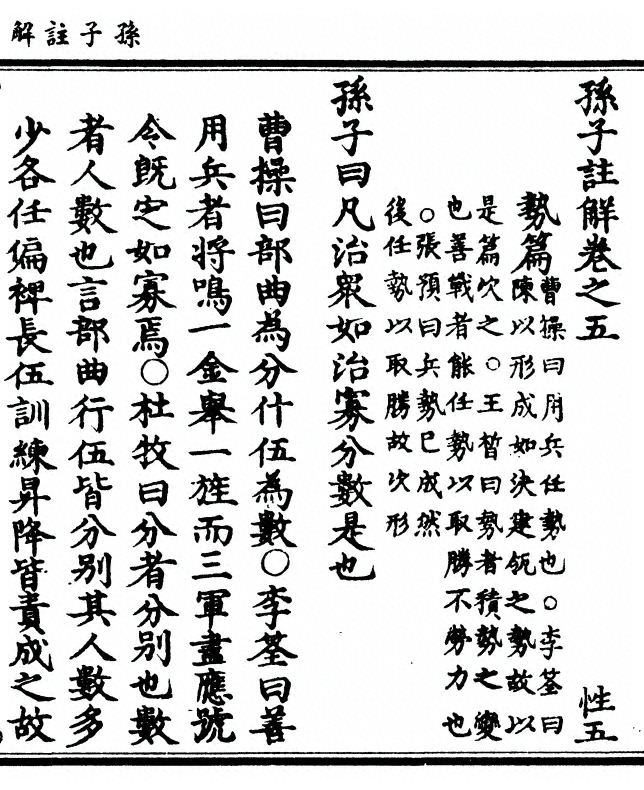 孫子註解
孫子註解卷之五　性五
勢篇
曹操曰用兵任勢也○李筌曰
陳以形成如決建瓴之勢故以
是篇次之○王晳曰勢者積勢之變
也善戰者能任勢以取勝不勞力也
○張預曰兵勢已成然
後任勢以取勝故次形
孫子曰凡治衆如治寡分數是也
曹操曰部曲為分什伍為數○李筌曰善
用兵者將鳴一金舉一旌而三軍盡應號
令既定如寡焉○杜牧曰分者分别也數
者人數也言部曲行伍皆分别其人數多
少各任偏裨長伍訓練昇降皆責成之故